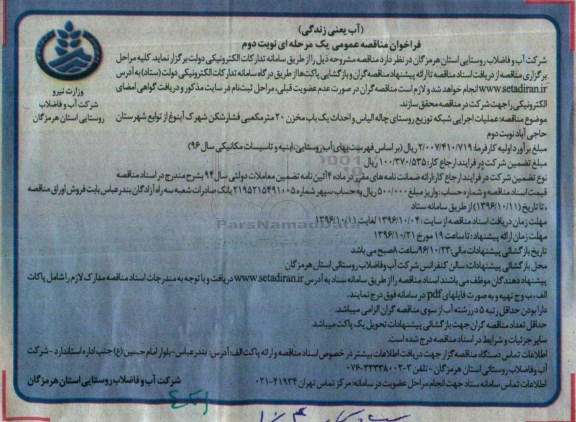 (آب یعنی زندگی)
فراخوان مناقصه عمومی یک مرحله ای نوبت دوم
وزارت نیرو
شرکت آب و فاضلاب
روستایی استان هرمزگان
شرکت آب و فاضلاب روستایی استان هرمزگان در نظر دارد مناقصه مشروحه ذیل را از طریق سامانه تدارکات الکترونیکی دولت برگزار نماید. کلیه مراحل
برگزاری مناقصه از دریافت اسناد مناقصه تا ارائه پیشنهاد مناقصه گران و بازگشایی پاکت‌ها از طریق درگاه سامانه تدارکات الکترونیکی دولت (ستاد) به آدرس
www.setadiran.ir انجام خواهد شد و لازم است مناقصه گران در صورت عدم عضویت قبلی، مراحل ثبت نام در سایت مذکور و دریافت گواهی امضای
الکترونیکی را جهت شرکت در مناقصه محقق سازند.
موضوع مناقصه: عملیات اجرایی شبکه توزیع روستای چاه الیاس و احداث یک باب مخزن ۲۰ مترمکعبی فشارشکن شهرک آبنوع از توابع شهرستان
حاجی آباد نوبت دوم
مبلغ برآورد اولیه کارفرما: ۲/۰۰۷/۴۱۰/۷۱۹ ریال (بر اساس فهرست بهای آب روستایی، ابنیه و تاسیسات مکانیکی سال ۹۶)
مبلغ تضمین شرکت در فرایند ارجاع کار: ۱۰۰/۳۷۰/۵۳۵ ریال
نوع تضمین شرکت در فرایند ارجاع کار ارائه ضمانت نامه های مقرر در ماده ۴ آئین نامه تضمین معاملات دولتی سال ۹۴ بشرح مندرج در اسناد مناقصه
قیمت اسناد مناقصه و شماره حساب: واریز مبلغ ۵۰۰/۰۰۰ ریال به حساب سپهر شماره ۲۱۹۵۲۱۵۴۹۱۰۰۵ بانک صادرات شعبه سه راه آزادگان بندرعباس بابت فروش اوراق مناقصه
تا تاریخ (۱۳۹۶/۱۰/۱۱) از طریق سامانه ستاد
مهلت زمان دریافت اسناد مناقصه از سایت: ۱۳۹۶/۱۰/۰۴ لغایت ۱۳۹۶/۱۰/۱۱
مهلت زمان ارائه پیشنهاد: تا ساعت ۱۹ مورخ ۱۳۹۶/۱۰/۲۱
تاریخ بازگشائی پیشنهادات مالی: ۹۶/۱۰/۲۳ ساعت ۸ صبح می باشد
محل بازگشائی پیشنهادات: سالن کنفرانس شرکت آب و فاضلاب روستائی استان هرمزگان
پیشنهاد دهندگان موظف می باشند اسناد مناقصه را از طریق سامانه ستاد به آدرس www.setadiran.ir دریافت و با توجه به مندرجات اسناد مناقصه مدارک لازم را شامل پاکات
الف، ب و ج تهیه و به صورت فایلهای pdf در سامانه فوق درج نمایند.
دارا بودن حداقل رتبه ۵ در رشته آب از سوی مناقصه گران الزامی میباشد.
حداقل تعداد مناقصه گران جهت بازگشائی پیشنهادات تحویل یک پاکت میباشد
سایر جزئیات و شرایط در اسناد مناقصه درج شده است.
اطلاعات تماس دستگاه مناقصه گزار جهت دریافت اطلاعات بیشتر در خصوص اسناد مناقصه و ارائه پاکت الف: آدرس: بندرعباس-بلوار امام حسین (ع) جنب اداره استاندارد - شرکت
آب و فاضلاب روستائی استان هرمزگان - تلفن ۲-۰۷۶۳۳۳۳۸۰۰۲
اطلاعات تماس سامانه ستاد جهت انجام مراحل عضویت در سامانه: مرکز تماس تهران ۴۱۹۳۴-۰۲۱
شرکت آب و فاضلاب روستایی استان هرمزگان
ParsNamadData